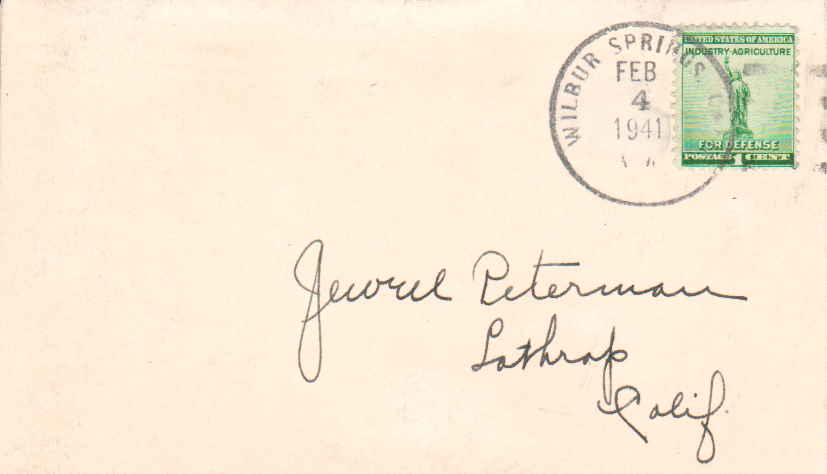 WILBUR SPRINGS
FEB
4
1941
UNITED STATES OF AMERICA
INDUSTRY-AGRICULTURE
FOR DEFENSE
POSTAGE 1 CENT
Jewel Peterman
Lathrop
Calif.